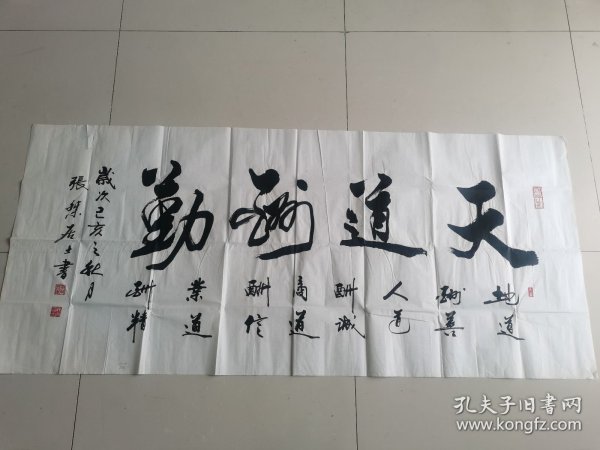 天道酬勤
地道
酬善
人道
酬诚
商道
酬信
業道
酬精
歲次己亥之秋月
張
居士書
孔夫子旧书网
www.kongfz.com